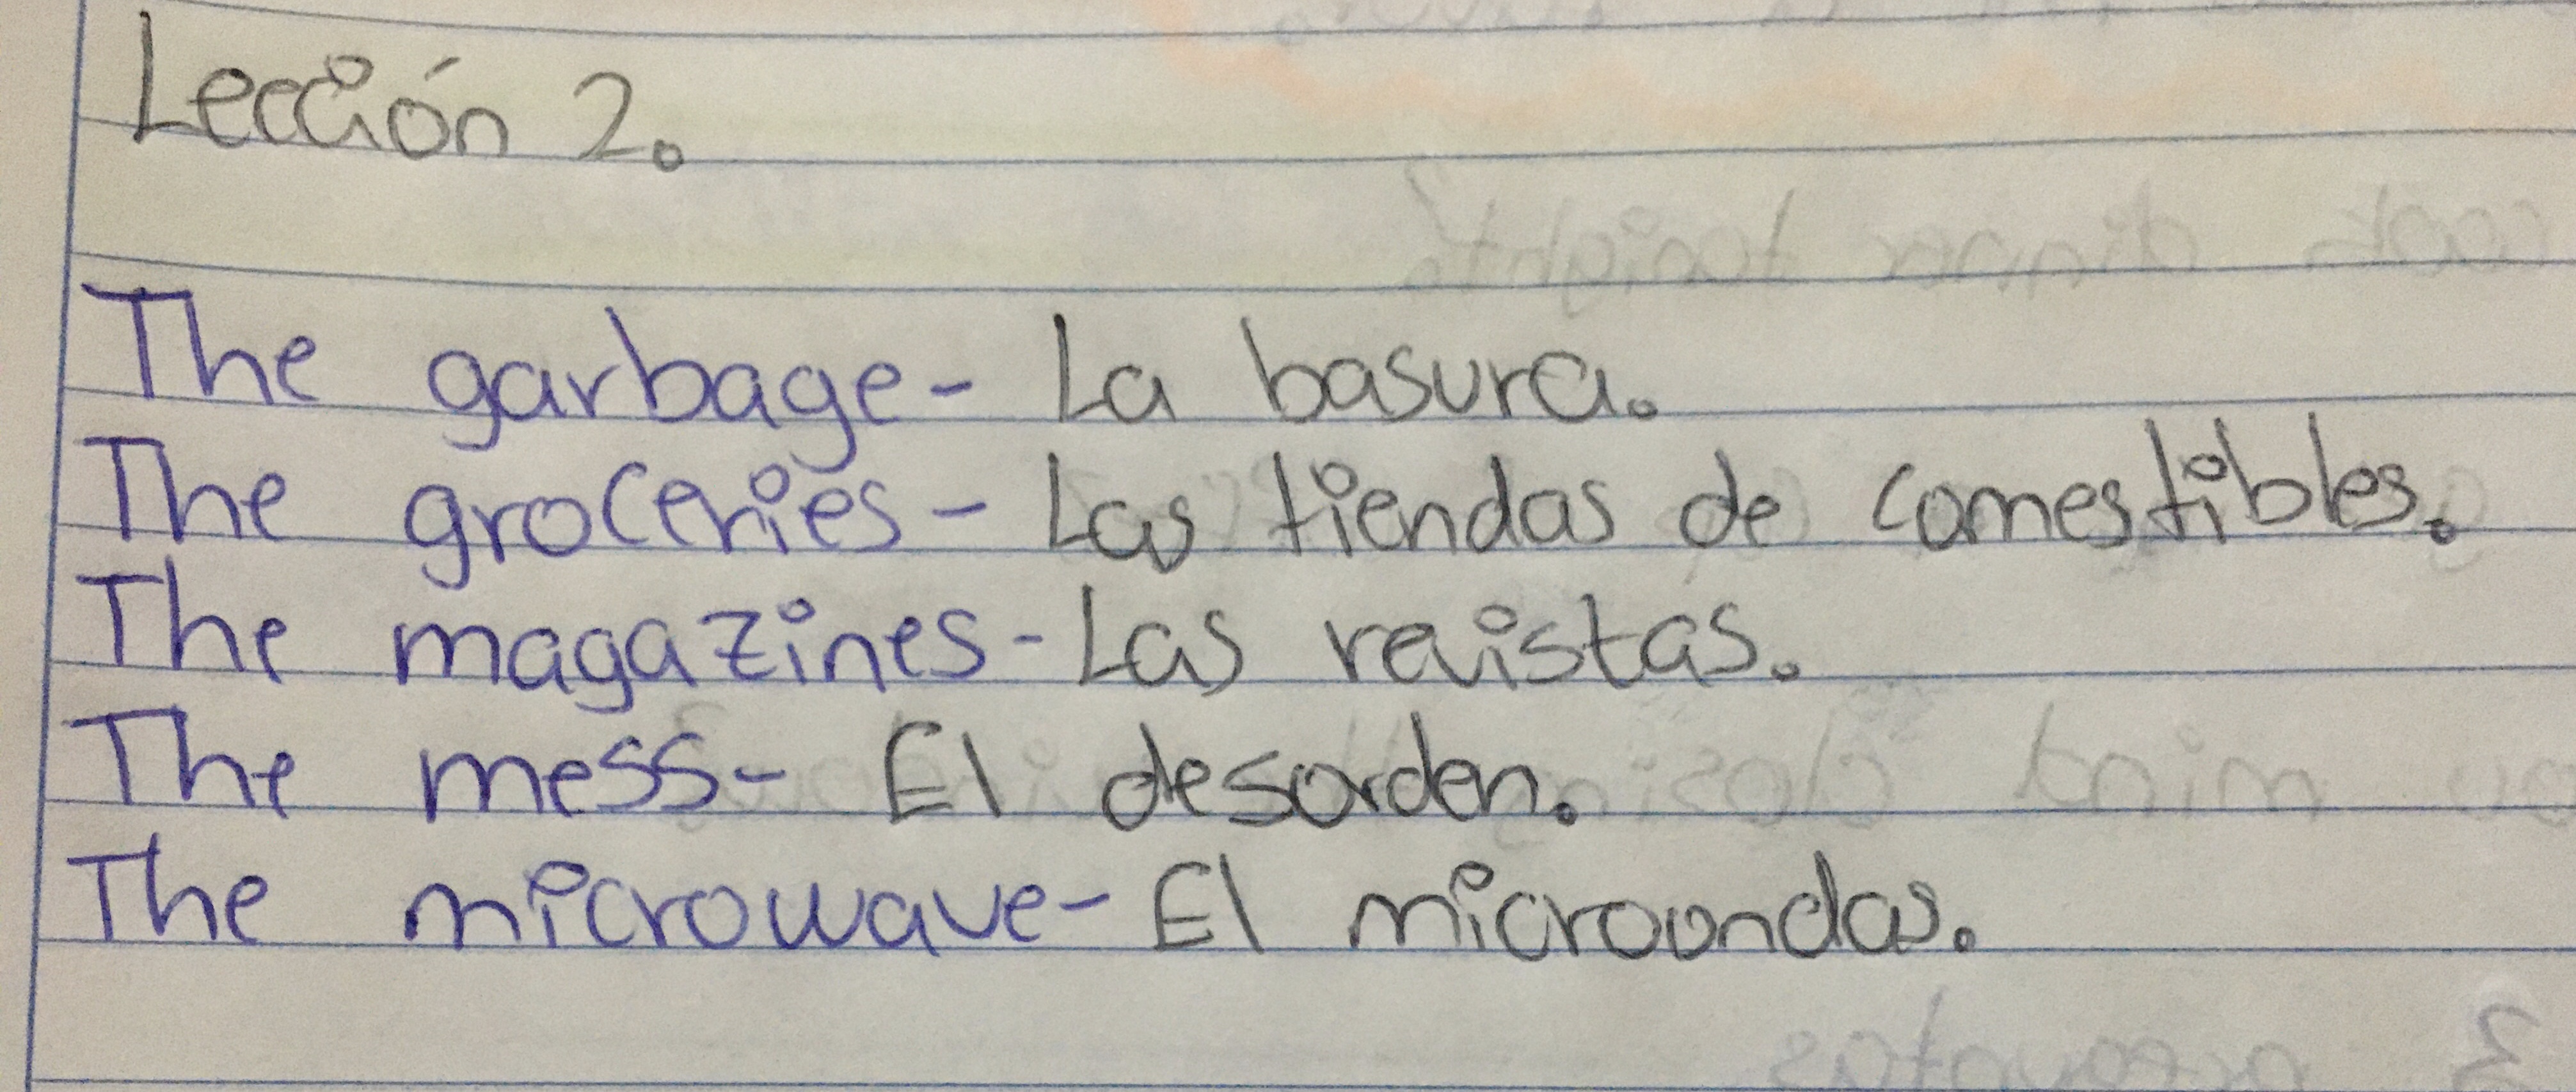 Lección 2.
The garbage- La basura.
The groceries- Las tiendas de comestibles.
The magazines- Las revistas.
The mess- El desorden.
The microwave- El microondas.